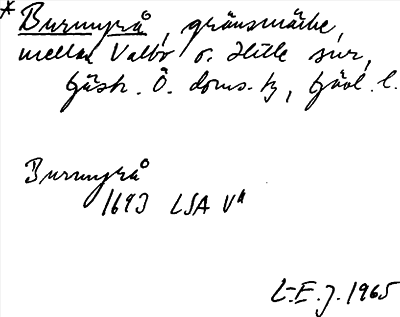 * Burmyrå, gränsmärke,
mellan Valbo o. Hille snr,
Gästr. Ö. doms. tg, Gävl. l.
Burmyrå
1693 LSA V11
L-E. J. 1965